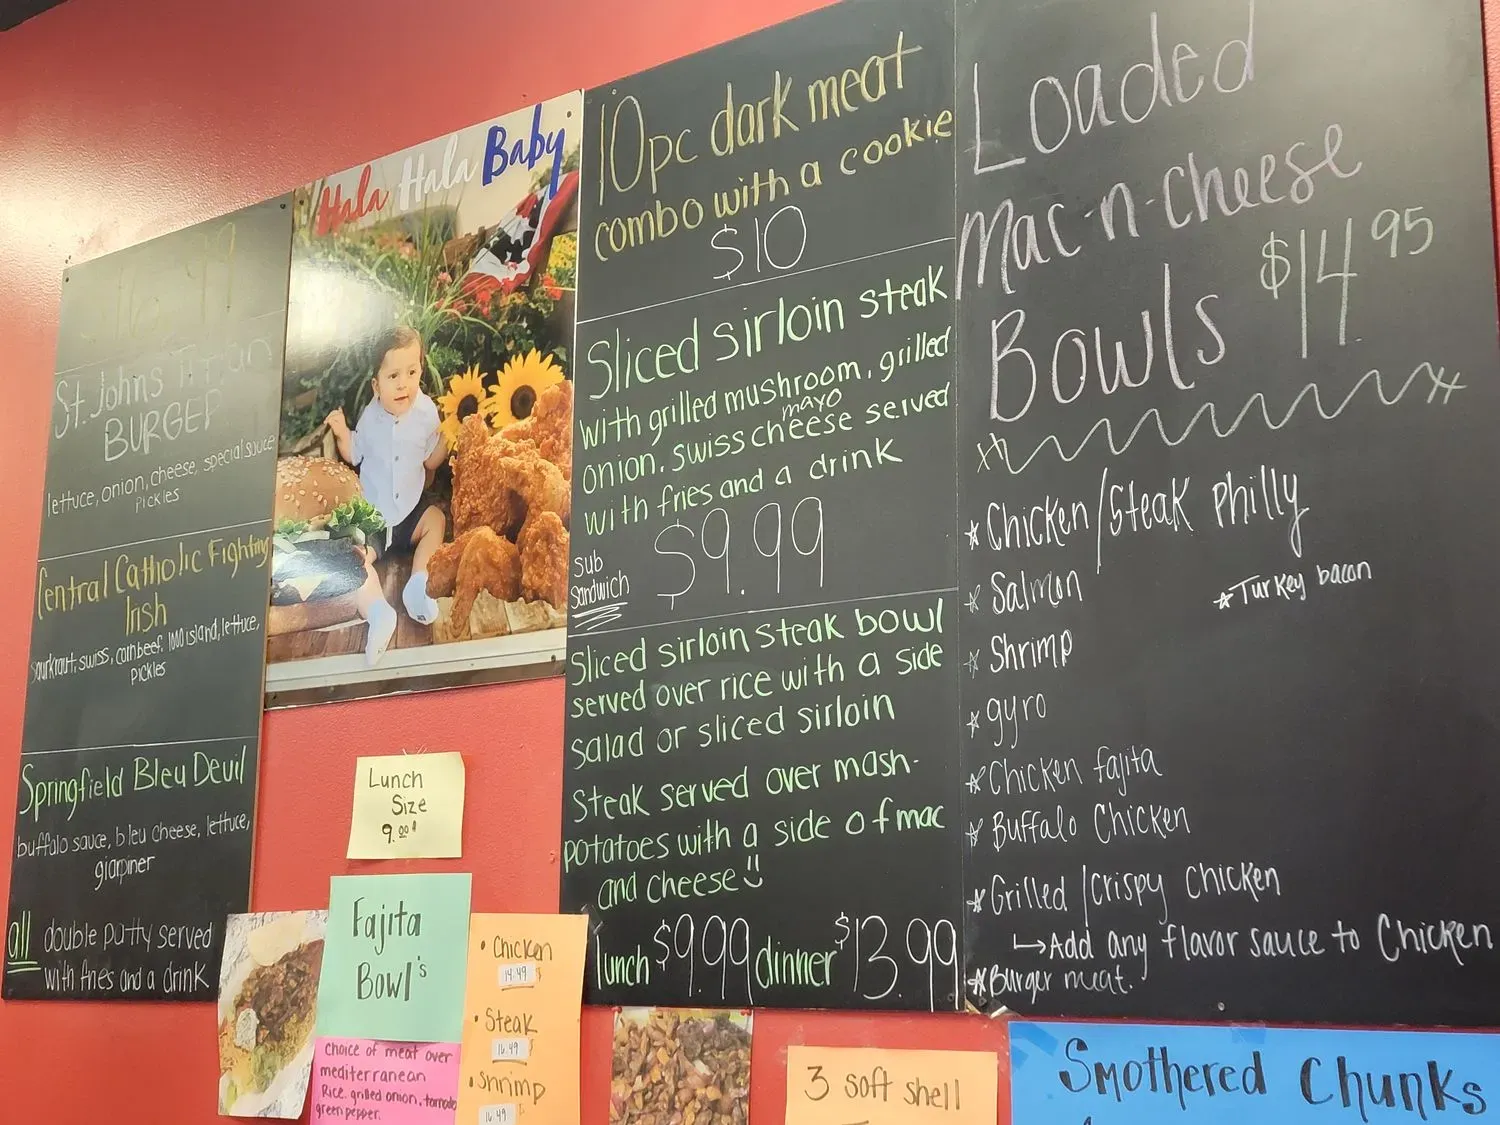 St. Johns Titan
BURGER
lettuce, onion, cheese, special sauce
PICKLES
Central Catholic Fighting
Irish
sourkraut, swiss, cornbeef, 1000 island, lettuce,
PICKLES
Springfield Bleu Devil
buffalo sauce, bleu cheese, lettuce,
giarpiner
all double patty served
with fries and a drink
Hala Hala Baby
10pc dark meat
combo with a cookie
$10
Sliced sirloin steak
with grilled mushroom, grilled
mayo
onion, swiss cheese served
with fries and a drink
sub
sandwich
$9.99
Sliced sirloin steak bowl
served over rice with a side
salad or sliced sirloin
steak served over mash-
potatoes with a side of mac
and cheese
lunch $9.99 dinner $13.99
Loaded
Mac-n-cheese
Bowls $14.95
Chicken/Steak Philly
Salmon
Turkey bacon
Shrimp
gyro
Chicken fajita
Buffalo Chicken
Grilled/Crispy Chicken
Add any flavor sauce to Chicken
Burger meat.
Lunch
Size
9.00
Fajita
Bowl's
Choice of meat over
mediterranean
Rice, grilled onion, tomato
green pepper.
Chicken
14.49
Steak
16.49
Shrimp
16.49
3 soft shell
Smothered Chunks